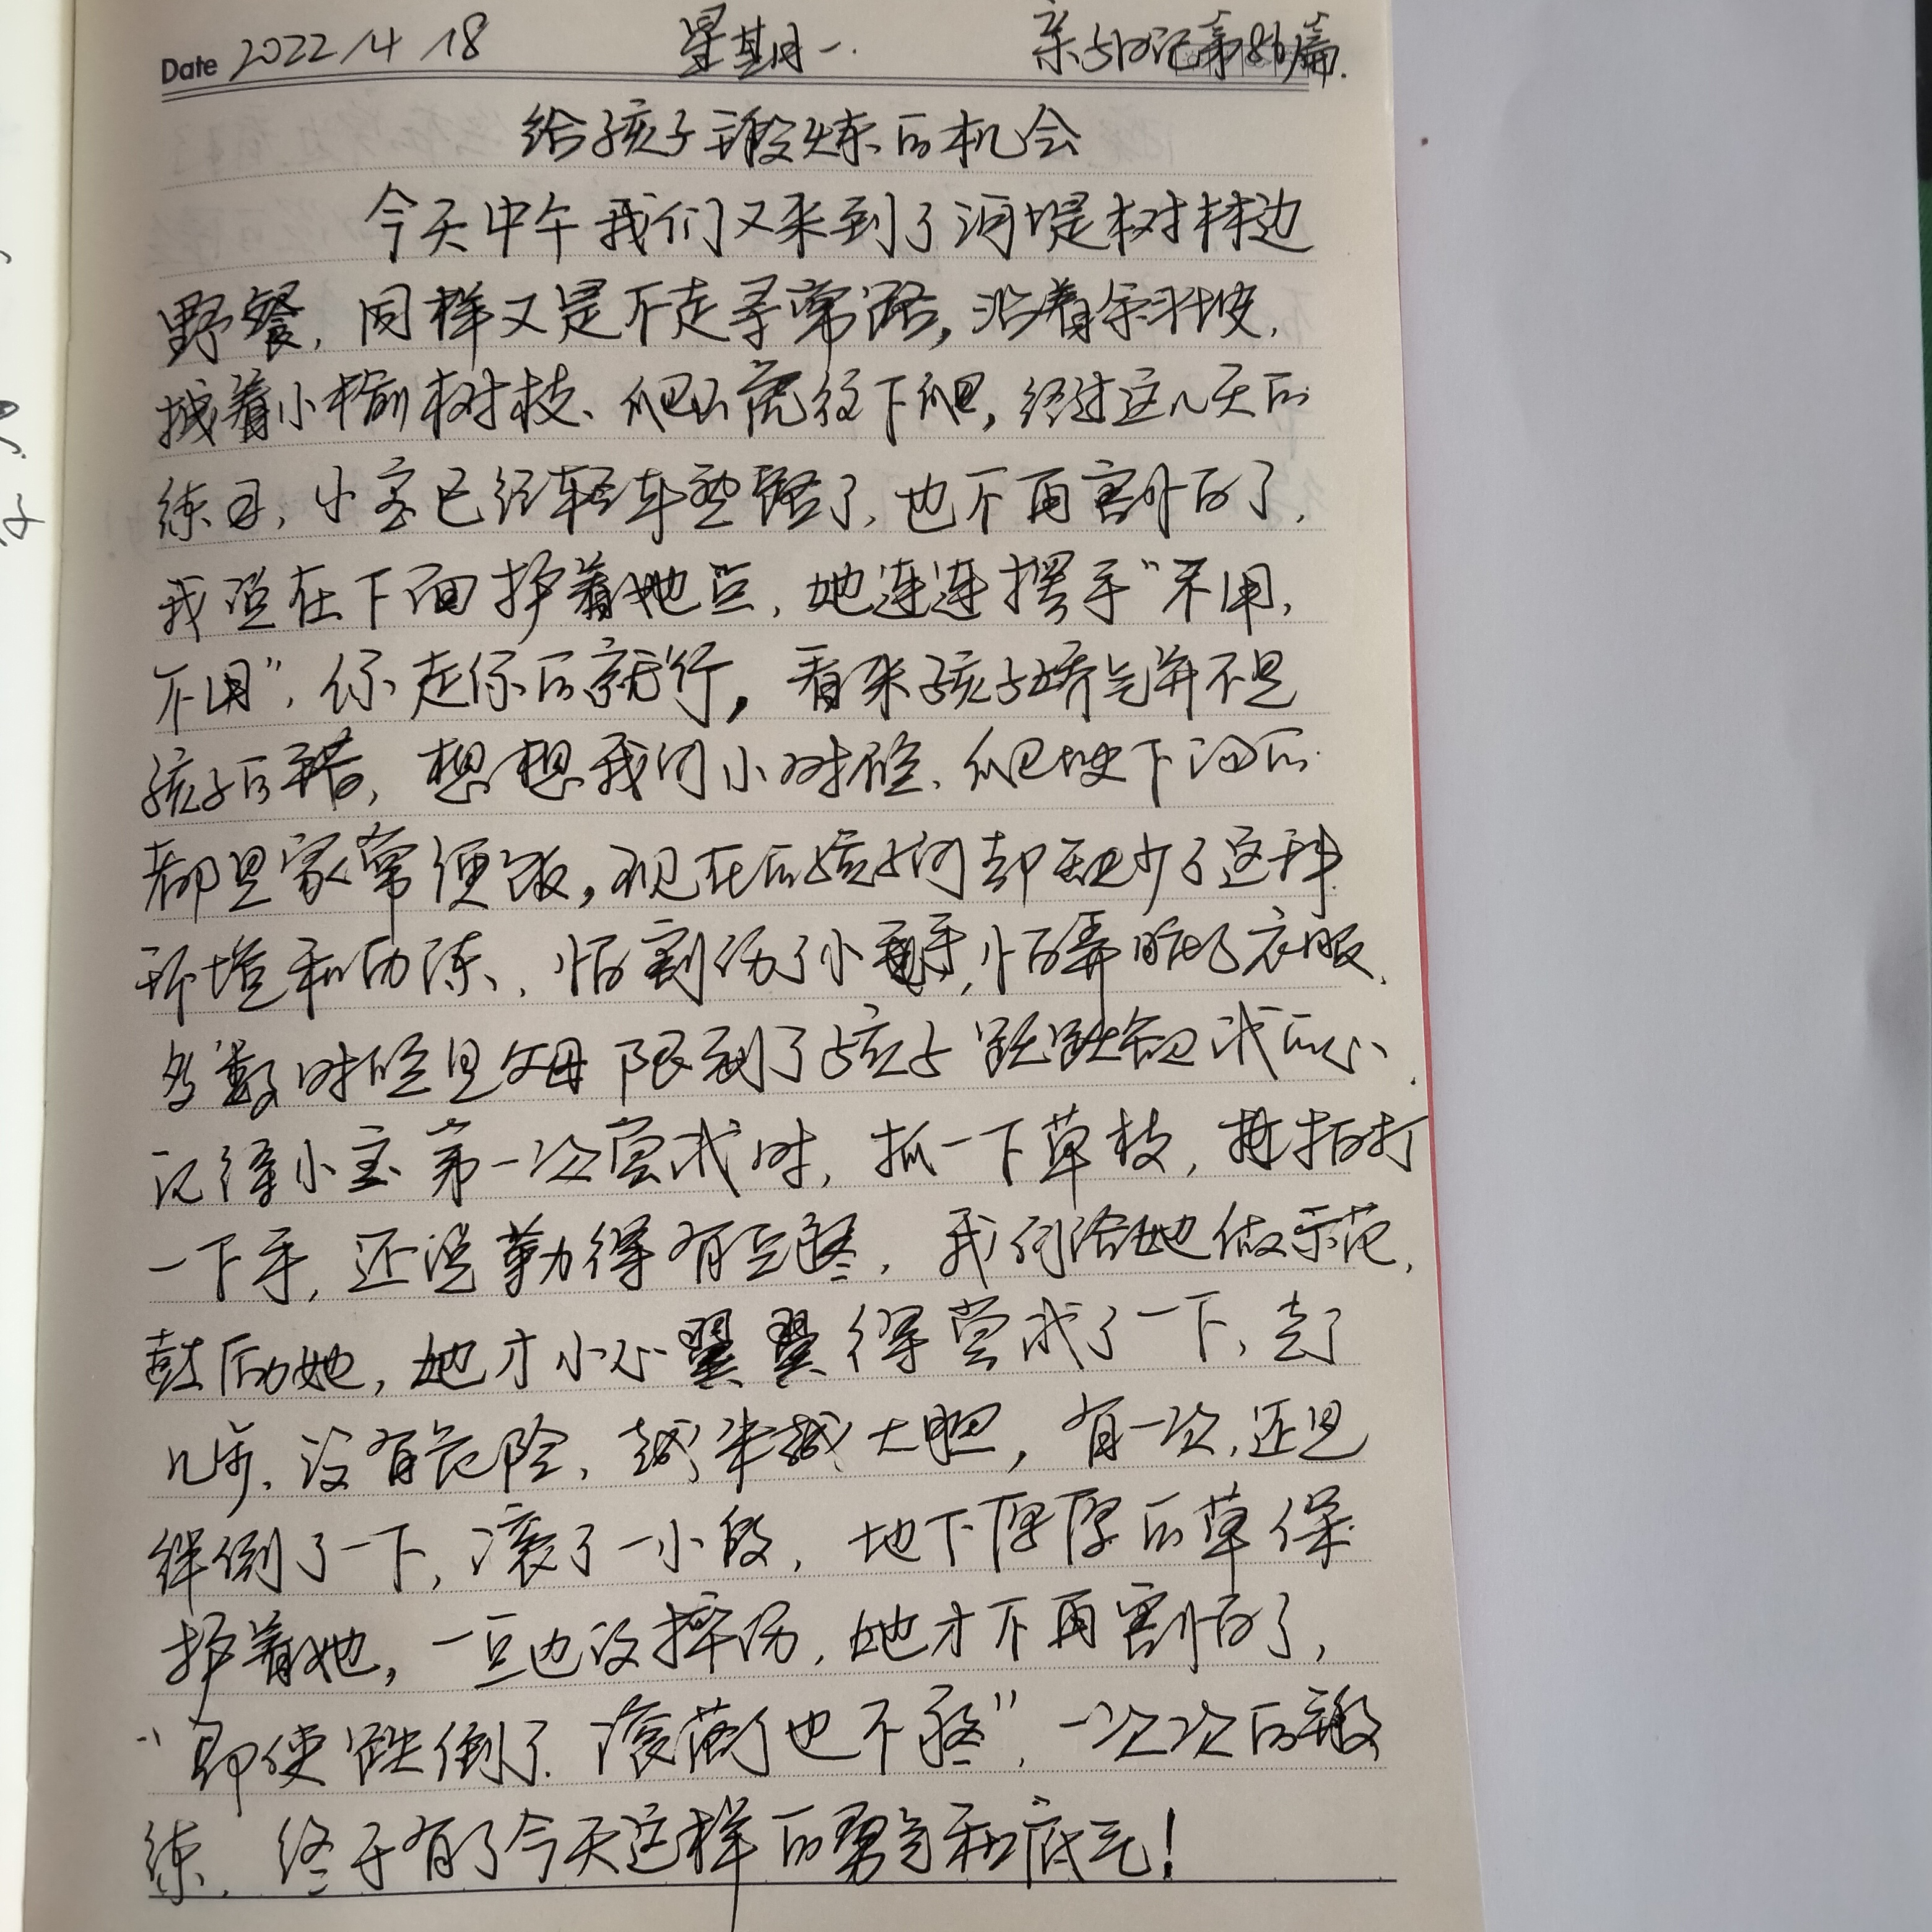 Date 2022/4 18 星期一. 亲子日记第86篇.
给孩子锻炼的机会
今天中午我们又来到了河堤树林边
野餐,同样又是不走寻常路,沿着斜坡,
拽着小树枝、爬山虎往下爬,经过这几天的
练习,小宝已经轻车熟路了,也不再害怕了,
我说在下面护着她点,她连连摆手"不用,
不用",你走你的就行,看来孩子娇气并不是
孩子的错,想想我们小时候、爬坡下沟的
都是家常便饭,现在的孩子们却缺少了这种
环境和历练、,怕割伤了小手,怕弄脏了衣服、
多数时候是父母限制了孩子跃跃欲试的心、
记得小宝第一次尝试时,抓一下草枝,拍打
一下手,还说勒得有点疼,我们给她做示范,
鼓励她,她才小心翼翼得尝试了一下、走了
几步、没有危险、越来越大胆,有一次,还是
绊倒了一下,滚了一小段,地下厚厚的草保
护着她,一点也没摔伤,她才不再害怕了,
"即使跌倒了、滚落了也不疼",一次次的锻
练、终于有了今天这样的勇气和底气!